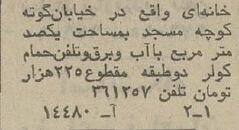 خانه‌ای واقع در خیابان‌گوته
کوچه مسجد بمساحت یکصد
متر مربع باآب وبرق‌وتلفن‌حمام
کولر دوطبقه مقطوع۲۲۵هزار
تومان تلفن ۳۶۱۲۵۷
۱-۲ آ- ۱۴۴۸۰